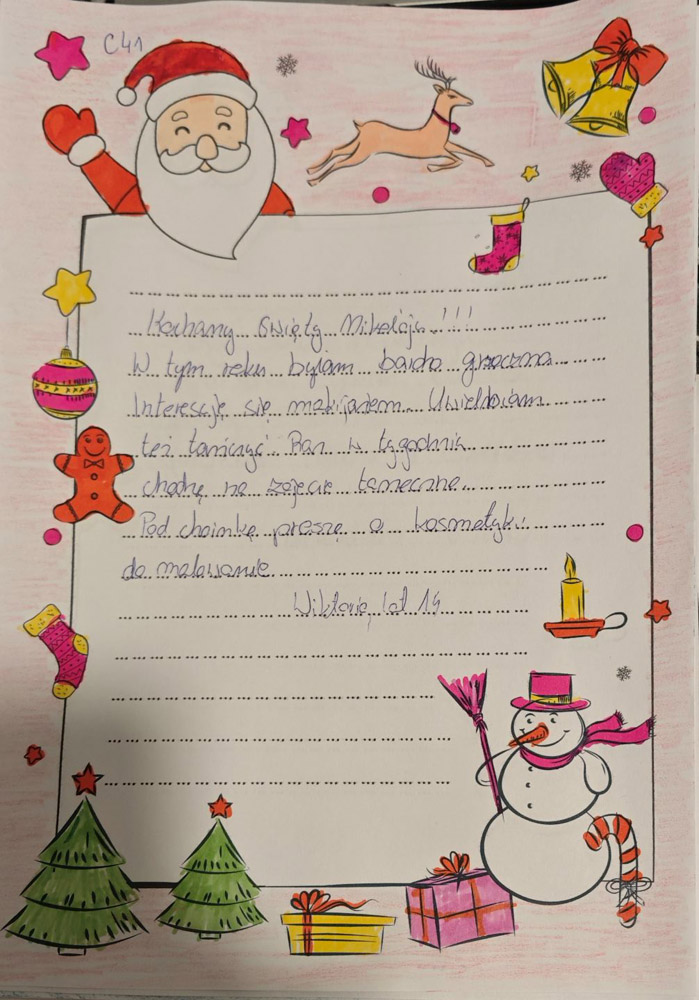 C41
Kochany Święty Mikołaju!!!
W tym roku byłam bardzo grzeczna
Interesuję się makijażem. Uwielbiam
też tańczyć. Raz w tygodniu
chodzę na zajęcia taneczne.
Pod choinkę proszę o kosmetyki
do malowania
Wiktoria, lat 14